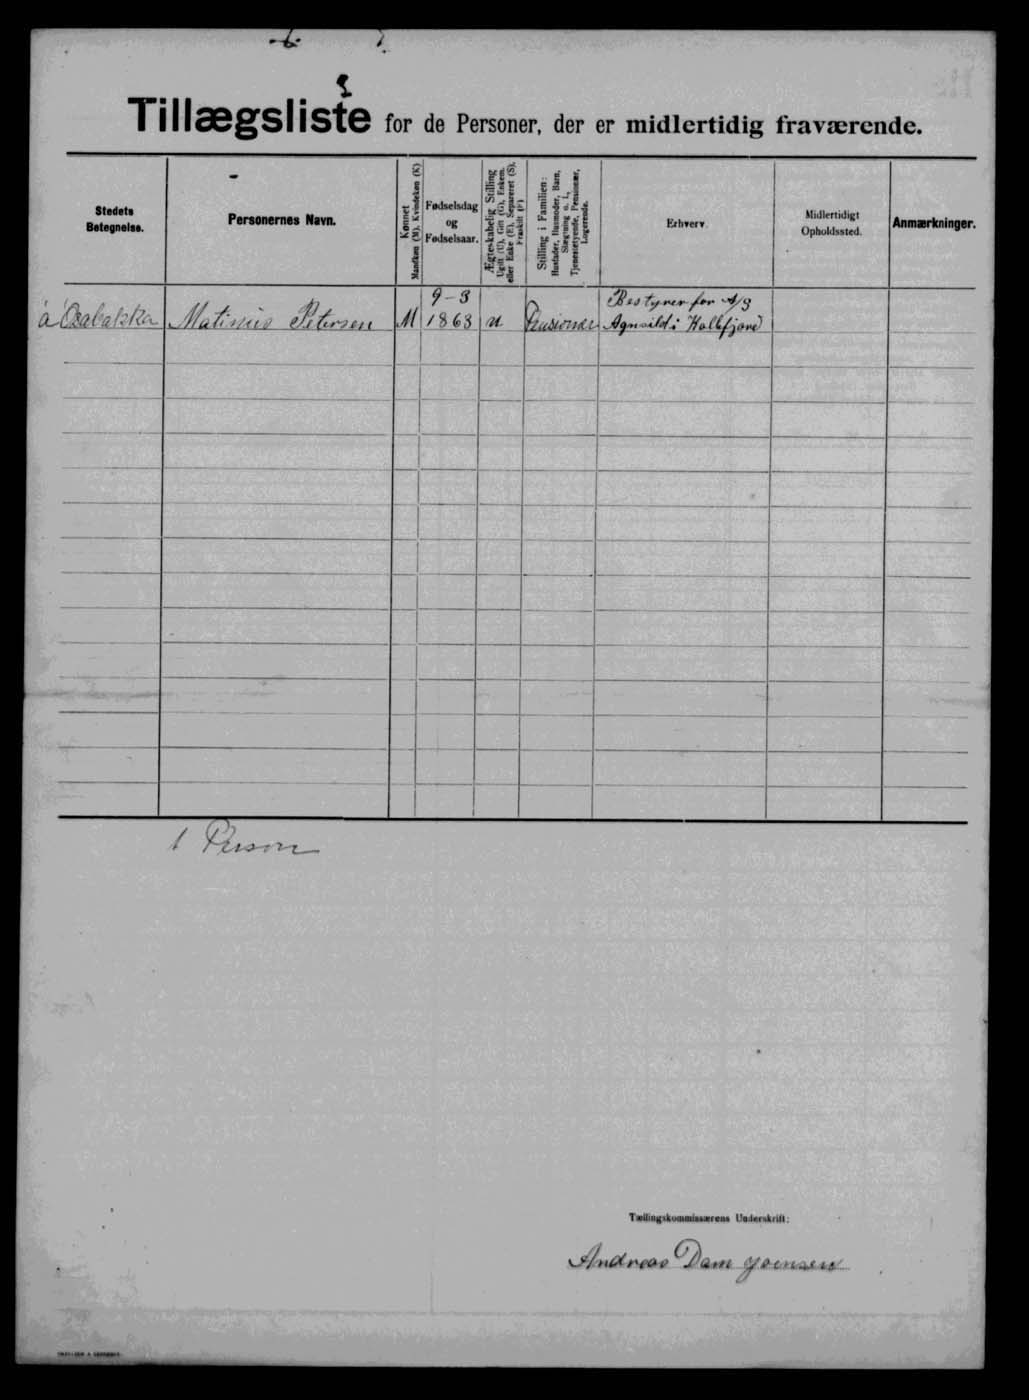 Tillægsliste for de Personer, der er midlertidig fraværende.
Stedets Betegnelse.
Personernes Navn.
Kønnet Mandkøn (M). Kvindekøn (K)
Fødselsdag og Fødselsaar.
Ægteskabelig Stilling Ugift (U), Gift (G), Enkem. eller Enke (E), Separeret (S), Fraskilt (F)
Stilling i Familien: Husfader, Husmoder, Barn, Slægtning o. l., Tjenestetyende, Pensionær, Logerende.
Erhverv.
Midlertidigt Opholdssted.
Anmærkninger.
9-3 Bestyrer for A/S
Matinus Petersen M 1863 u Pensionær Agnsild i Kollefjord
1 Person
Tællingskommissærens Underskrift:
Andreas Dam Joensen